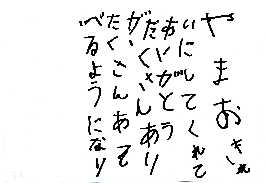 やまおきれ
いにしてくれて
ありがとう
だくさんあり
が、
たくさんあそ
べるようになり